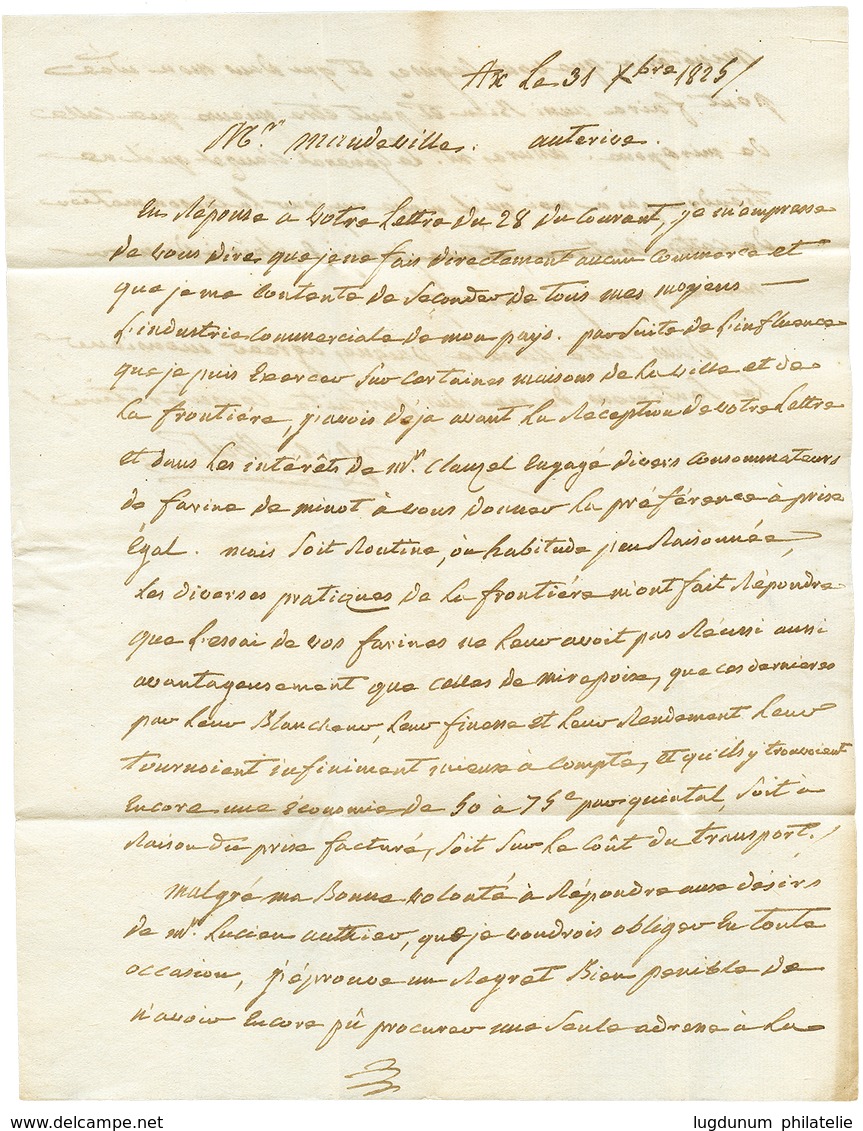 Ax Le 31 Xbre 1825/
Mr. Mandeville. auterive.
En Réponse à Votre Lettre du 28 du Courant, je m'empresse
de vous dire que je ne fais directement aucun Commerce et
que je me Contente de Seconder de tous mes moyens —
L'industrie Commerciale de mon pays. par Suite de L'influence
que je puis Exercer Sur Certaines maisons de La ville et de
La frontière, j'avois déja avant La Réception de votre Lettre
et dans Les intérêts de Mr. Clauzel Engagé divers Consommateurs
de farine de minot à vous donner La préférence à prix
Égal. mais Soit Routine, ou habitude peu Raisonnée,
Les diverses pratiques de La frontière m'ont fait Répondre
que L'essai de vos farines ne Leur avoit pas Réussi aussi
avantageusement que celles de mirepoix, que ces dernières
par Leur Blancheur, Leur finesse et Leur Rendement Leur
Tournoient infiniment mieux à Compte, et qu'ils y trouvoient
Encore une économie de 50 à 75c par quintal, Soit à
Raison du prix facturé, Soit Sur Le Coût du transport./
Malgré ma Bonne volonté à Répondre aux désirs
de Mr. Lucien authier, que je voudrois obliger En toute
occasion, j'éprouve un Regret Bien penible de
n'avoir Encore pû procurer une Seule adresse à La
www.delcampe.net
lugdunum philatelie